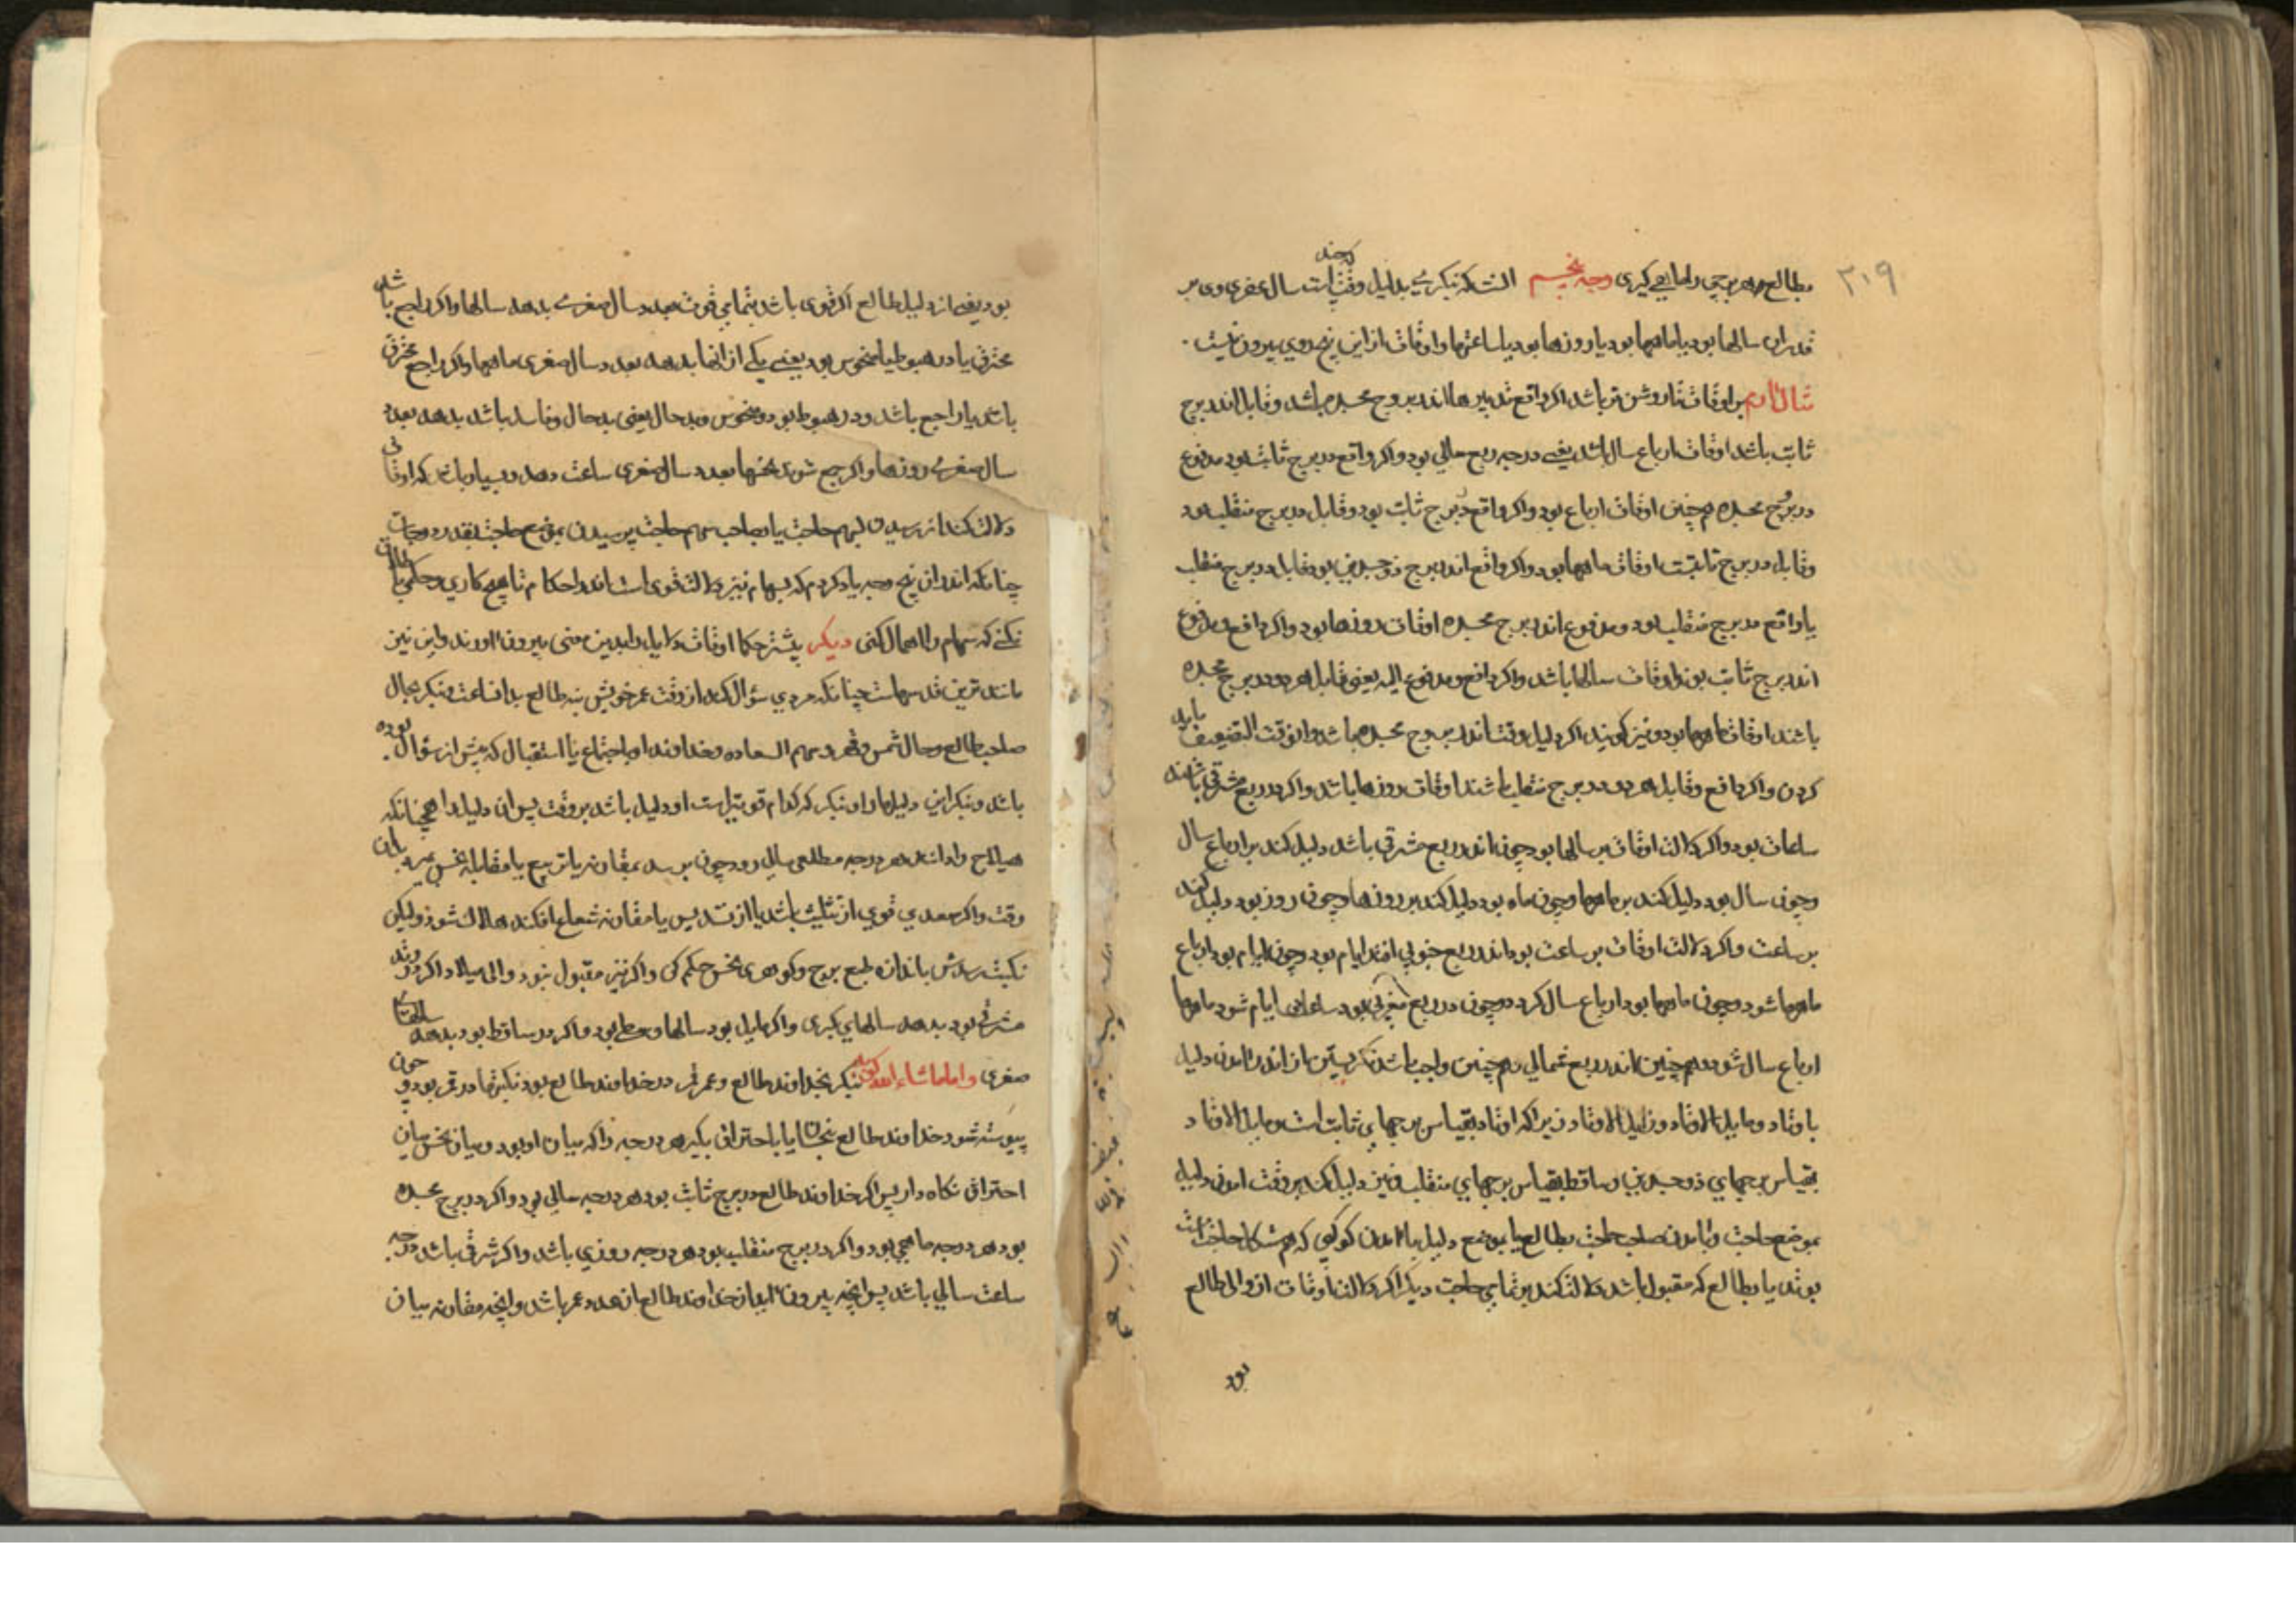 ۲۱۹
مطالع هر برجی را ماهی گیری وجه پنجم آنست که بنگری بدلیل وقت که چند است سال صغری وی بر
قدر آن سالها بود یا ماهها بود یا روزها بود یا ساعتها و اوقات از این پنج روی بیرون نیست
اوقات تا روشن تر باشد اگر واقع تدبیرها اندر بروج مجسده باشد و قابل اندر برج
ثابت باشد اوقات ارباع سال باشد یعنی هر درجه ربع سالی بود و اگر واقع در برج ثابت بود و مدفوع
در برج مجسده همچنین اوقات ارباع بود و اگر واقع در برج ثابت بود و قابل در برج منقلب بود
و قابل در برج ثابتست اوقات ماهها بود و اگر واقع اندر برج ذوجسدین بود و قابل در برج منقلب
یا واقع در برج منقلب بود و مدفوع اندر برج مجسده اوقات روزها بود و اگر دافع و مدفوع
اندر برج ثابت بوند اوقات سالها باشد و اگر دافع و مدفوع الیه یعنی قابل هر دو در برج مجسده
باشند اوقات ماهها بود و نیز گویند اگر دلیل وقت اندر بروج مجسده باشد و الوقت التضعیف باید
کردن و اگر دافع و قابل هر دو در برج منقلب باشند اوقات روزها باشد و اگر در ربع مشرقی باشند
ساعات بود و اگر دلالت اوقات بر سالها بود چون اندر ربع شرقی باشد دلیل کند بر ارباع سال
و چون سال بود دلیل کند بر ماهها و چون ماه بود دلیل کند بر روزها و چون روز بود دلیل کند
بر ساعت و اگر دلالت اوقات بر ساعت بود اندر ربع جنوبی افتد ایام بود و چون ایام بود ارباع
ماهها شود و چون ماهها بود ارباع سال گردد و چون در ربع مغربی بود ساعات ایام شود ماهها
ارباع سال شود و همچنین اندر ربع شمالی و همچنین واجب باشد نگریستن از اندر آمدن دلیل
باوتاد و مایل الاوتاد و زایل الاوتاد زیرا که اوتاد بقیاس برجهای ثابت است و مایل الاوتاد
بقیاس برجهای ذوجسدین و ساقط بقیاس برجهای منقلب و نیز دلیل کند بر وقت آمدن دلیل
بموضع حاجت و یا آمدن صاحب حاجت بطالع یا بموضع دلیل یا آمدن کوکبی که هم شکل حاجت است
بوتد یا بطالع که مقبول باشد دلالت کند بر تمامی حاجت دیگر اگر دلالت اوقات از والی طالع
بود
بود یعنی از دلیل طالع اگر قوی باشد بتمامی قوت بعدد سال صغری بدهد سالها و اگر راجع باشد
محترق یا در هبوط یا منحوس بود یعنی یکی از اینها بدهد بعدد سال صغری ماهها و اگر راجع محترق
باشد یا راجع باشد و در هبوط بود و منحوس و بدحال یعنی بدحال و فاسد باشد بدهد بعدد
سال صغری روزها و اگر جمع شوند نحسها بعدد سال صغری ساعت دهد و بسیار باشد که اوقاتی
دلالت کند از رسیدن بسهم حاجت یا بصاحب سهم حاجت پرسیدن بموضع حاجت بقدر درجات
چنانکه اندر این پنج وجه یاد کردم که سهام نیز دلالت قوی است اندر احکام تا هیچ کاری و حکمی باطل
نکنی که سهام را اهمال کنی دیگر بیشتر حکما اوقات دلایل را بدین معنی بیرون آورند و این نیز
مانند ترین قدر سهامست چنانکه مردی سؤال کند از وقت عمر خویش بنه طالع بدان ساعت و بنگر بحال
صاحب طالع و حال شمس و قمر و سهم السعاده و خداوند او و اجتماع یا استقبال که پیش از سؤال بوده
باشد و بنگر این دلیلها را و بنگر که کدام قوی ترست او دلیل باشد بر وقت پس آن دلیل را همچنانکه
هیلاج را براند هر درجه مطلعی سالی رود چون برسد بمقارنه یا تربیع یا مقابله نحس بمیرد بآن
وقت و اگر سعدی قوی از تثلیث باشد یا از تسدیس یا مقارنه شعاع افکند هلاک نشود ولیکن
نکبت رسدش باندازه طبع برج و گوهر نحس حکم کن و اگر نیز مقبول نبود والی میلاد اگر در وتد
مشرقی بود بدهد سالهای کبری و اگر مایل بود سالها وسطی بود و اگر در ساقط بود بدهد سالهاء
صغری و اما ماشاءالله گوید بنگر بخداوند طالع و عمر قمر در خداوند طالع بود بنگر تا در قمر بود و چون
پیوسته شود خداوند طالع بنحسها یا باحتراق بگیر هر درجه را که میان او بود و میان نحس میان
احتراق نگاه دار پس اگر خداوند طالع در برج ثابت بود هر درجه سالی بود و اگر در برج مجسده
بود هر درجه ماهی بود و اگر در برج منقلب بود هر درجه روزی باشد و اگر شرقی باشد درجه
ساعت سالی باشد پس آنچه بیرون آید از خداوند طالع آن عدد عمر باشد و آنچه مقارنه میان